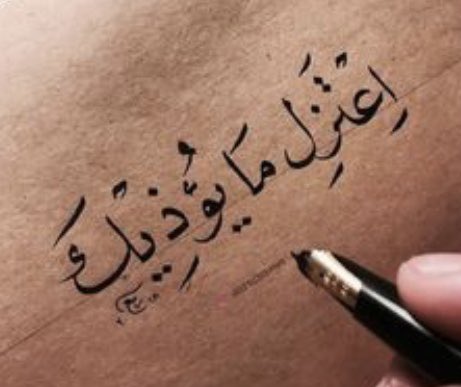 اِعْتَزِل مَا يُؤذِيْك